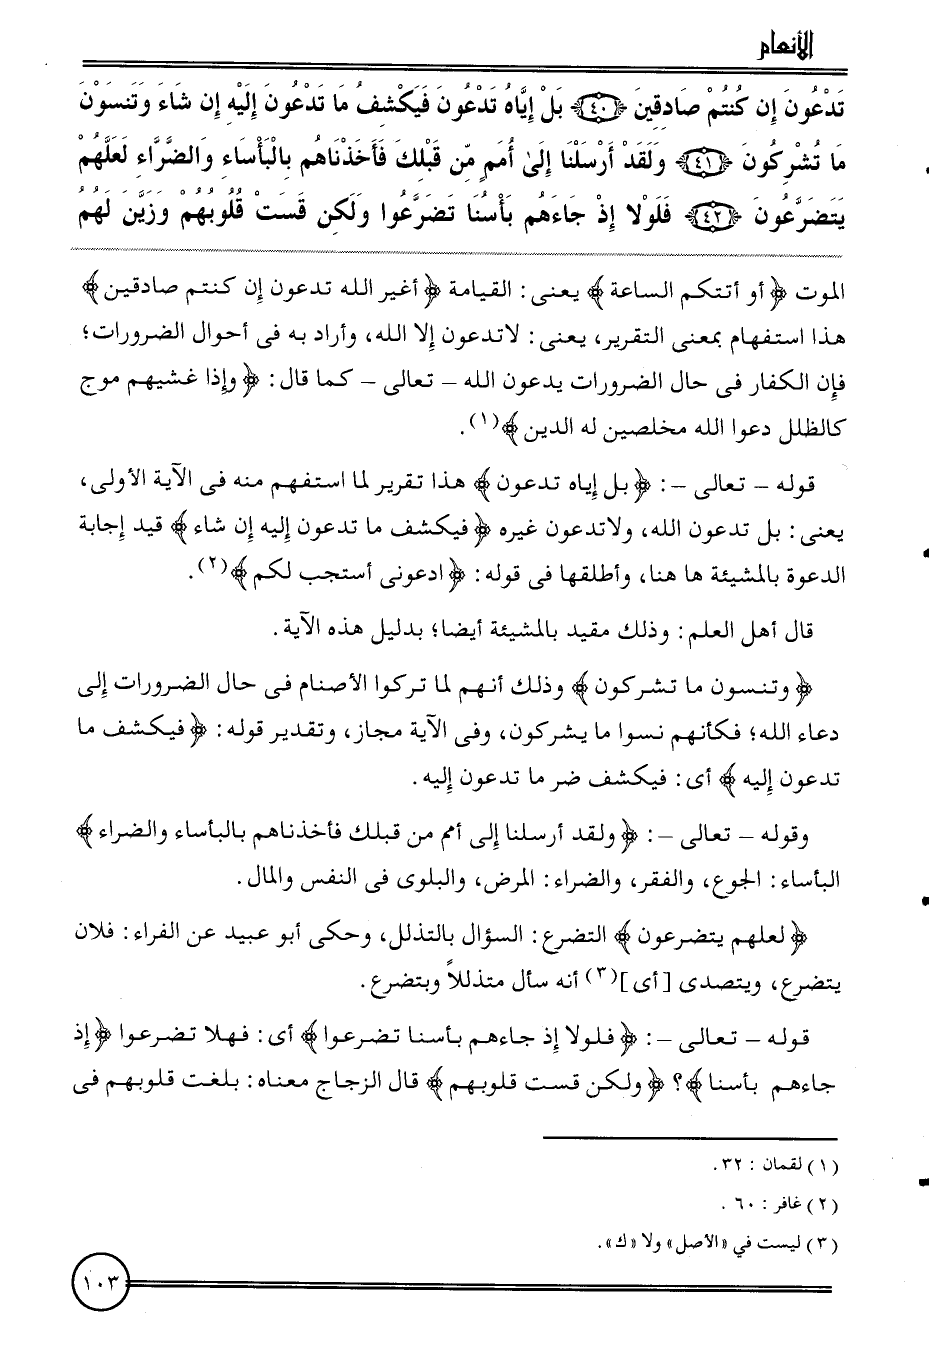 الأنعام
تَدْعُونَ إِن كُنتُمْ صَادِقِينَ ﴿٤٠﴾ بَلْ إِيَّاهُ تَدْعُونَ فَيَكْشِفُ مَا تَدْعُونَ إِلَيْهِ إِن شَاءَ وَتَنسَوْنَ
مَا تُشْرِكُونَ ﴿٤١﴾ وَلَقَدْ أَرْسَلْنَا إِلَىٰ أُمَمٍ مِّن قَبْلِكَ فَأَخَذْنَاهُم بِالْبَأْسَاءِ وَالضَّرَّاءِ لَعَلَّهُمْ
يَتَضَرَّعُونَ ﴿٤٢﴾ فَلَوْلا إِذْ جَاءَهُم بَأْسُنَا تَضَرَّعُوا وَلَكِن قَسَتْ قُلُوبُهُمْ وَزَيَّنَ لَهُمُ
الموت ﴿أو أتتكم الساعة﴾ يعنى: القيامة ﴿أغير الله تدعون إن كنتم صادقين﴾
هذا استفهام بمعنى التقرير، يعنى: لاتدعون إلا الله، وأراد به فى أحوال الضرورات؛
فإن الكفار فى حال الضرورات يدعون الله – تعالى – كما قال: ﴿وإذا غشيهم موج
كالظلل دعوا الله مخلصين له الدين﴾(١).
قوله – تعالى –: ﴿بل إياه تدعون﴾ هذا تقرير لما استفهم منه فى الآية الأولى،
يعنى: بل تدعون الله، ولاتدعون غيره ﴿فيكشف ما تدعون إليه إن شاء﴾ قيد إجابة
الدعوة بالمشيئة ها هنا، وأطلقها فى قوله: ﴿ادعونى أستجب لكم﴾(٢).
قال أهل العلم: وذلك مقيد بالمشيئة أيضا؛ بدليل هذه الآية.
﴿وتنسون ما تشركون﴾ وذلك أنهم لما تركوا الأصنام فى حال الضرورات إلى
دعاء الله؛ فكأنهم نسوا ما يشركون، وفى الآية مجاز، وتقدير قوله: ﴿فيكشف ما
تدعون إليه﴾ أى: فيكشف ضر ما تدعون إليه.
وقوله – تعالى –: ﴿ولقد أرسلنا إلى أمم من قبلك فأخذناهم بالبأساء والضراء﴾
البأساء: الجوع، والفقر، والضراء: المرض، والبلوى فى النفس والمال.
﴿لعلهم يتضرعون﴾ التضرع: السؤال بالتذلل، وحكى أبو عبيد عن الفراء: فلان
يتضرع، ويتصدى [أى](٣) أنه سأل متذللاً وبتضرع.
قوله – تعالى –: ﴿فلولا إذ جاءهم بأسنا تضرعوا﴾ أى: فهلا تضرعوا ﴿إذ
جاءهم بأسنا﴾؟ ﴿ولكن قست قلوبهم﴾ قال الزجاج معناه: بلغت قلوبهم فى
(١) لقمان : ٣٢.
(٢) غافر : ٦٠.
(٣) ليست في «الأصل» ولا «ك».
١٠٣